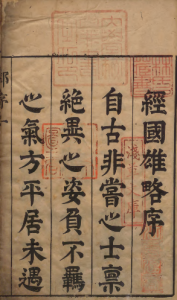 經國雄略序
自古非嘗之士禀
絕異之姿負不羈
之氣方平居未遇